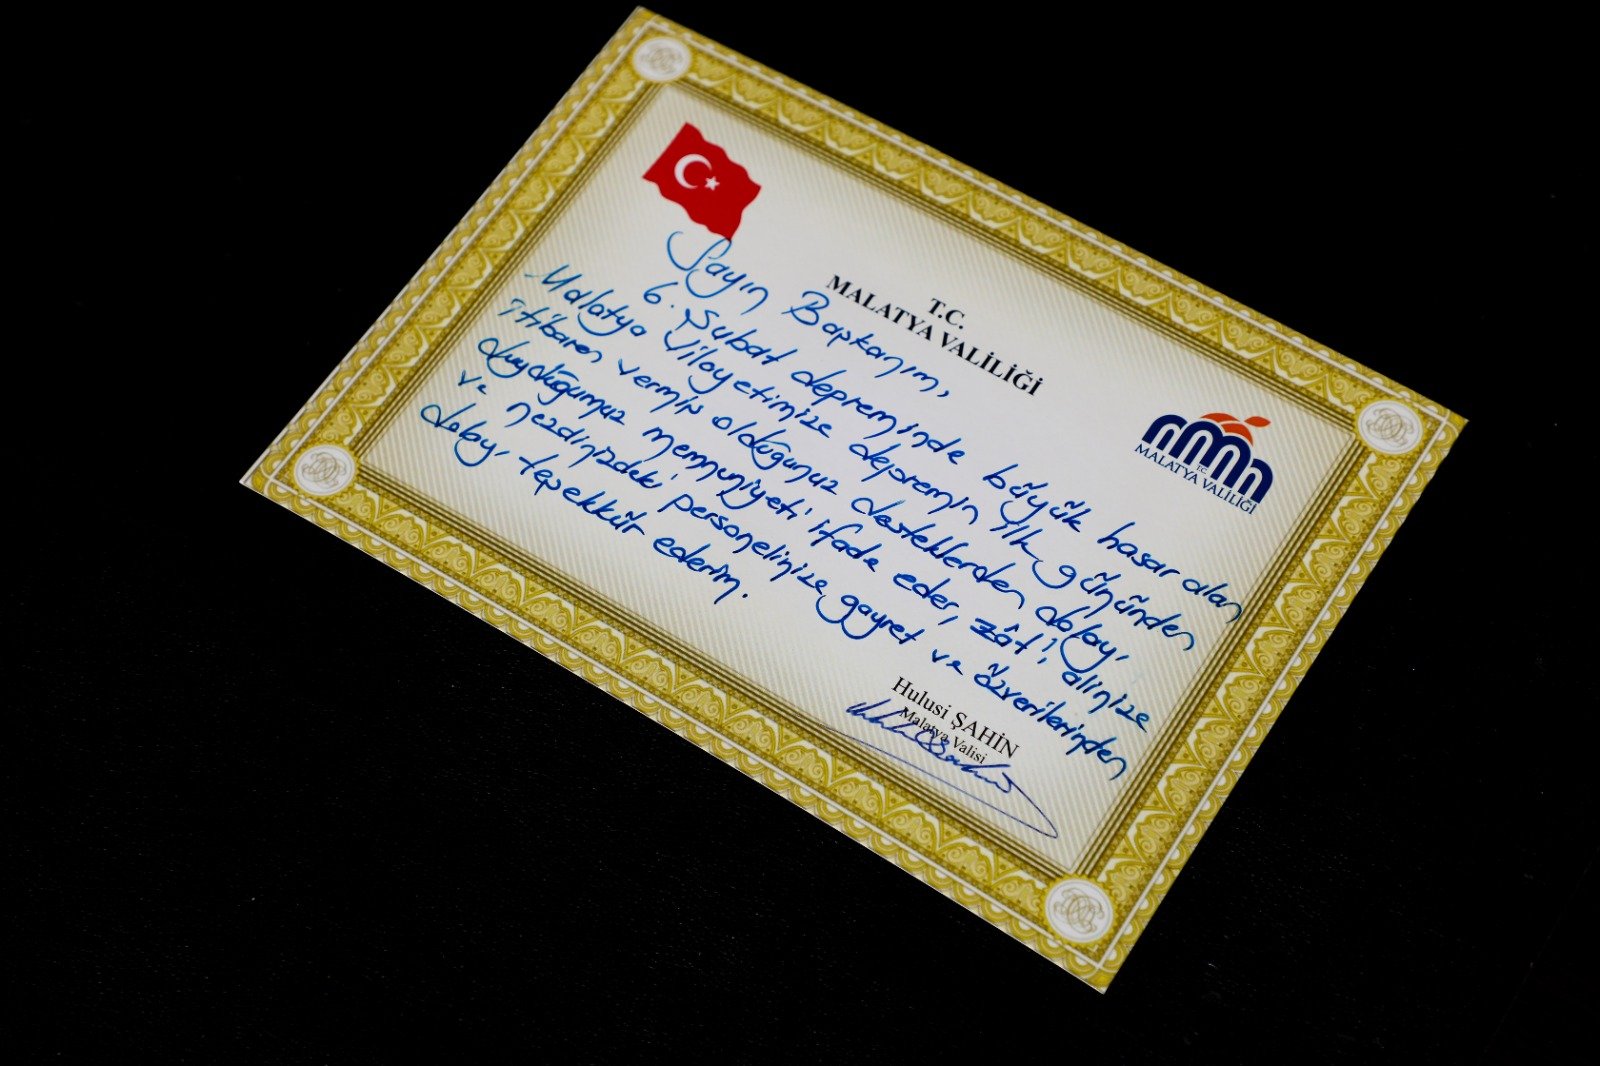 T.C.
MALATYA VALİLİĞİ
T.C.
MALATYA VALİLİĞİ
Sayın Başkanım,
6 Şubat depreminde büyük hasar alan
Malatya Vilayetimize depremin ilk gününden
itibaren vermiş olduğunuz desteklerden dolayı,
duyduğumuz memnuniyeti ifade eder, zât-ı alinize
ve nezdinizdeki personelinize gayret ve özverilerinden
dolayı, teşekkür ederim.
Hulusi ŞAHİN
Malatya Valisi